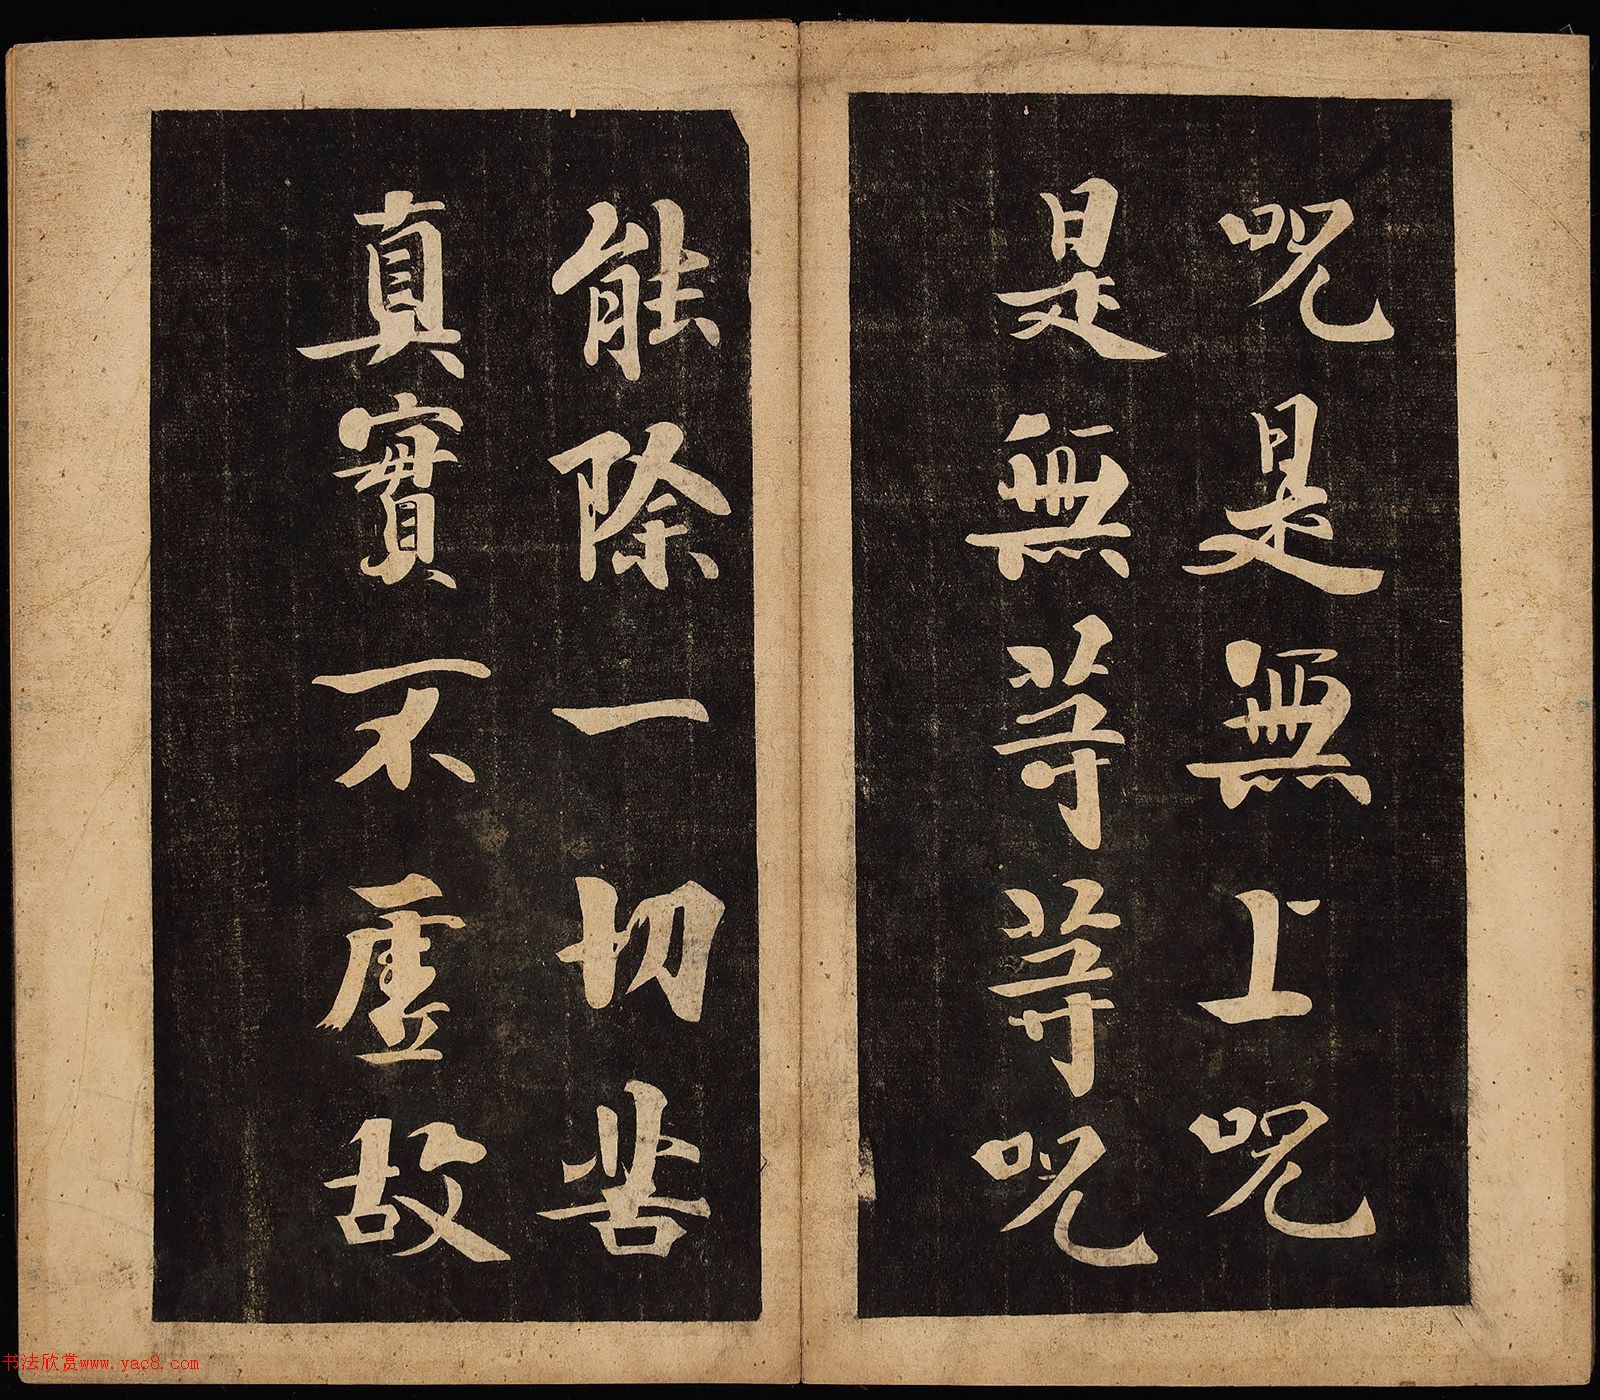 呪是無上呪
是無等等呪
能除一切苦
真實不虛故
书法欣赏www.yac8.com